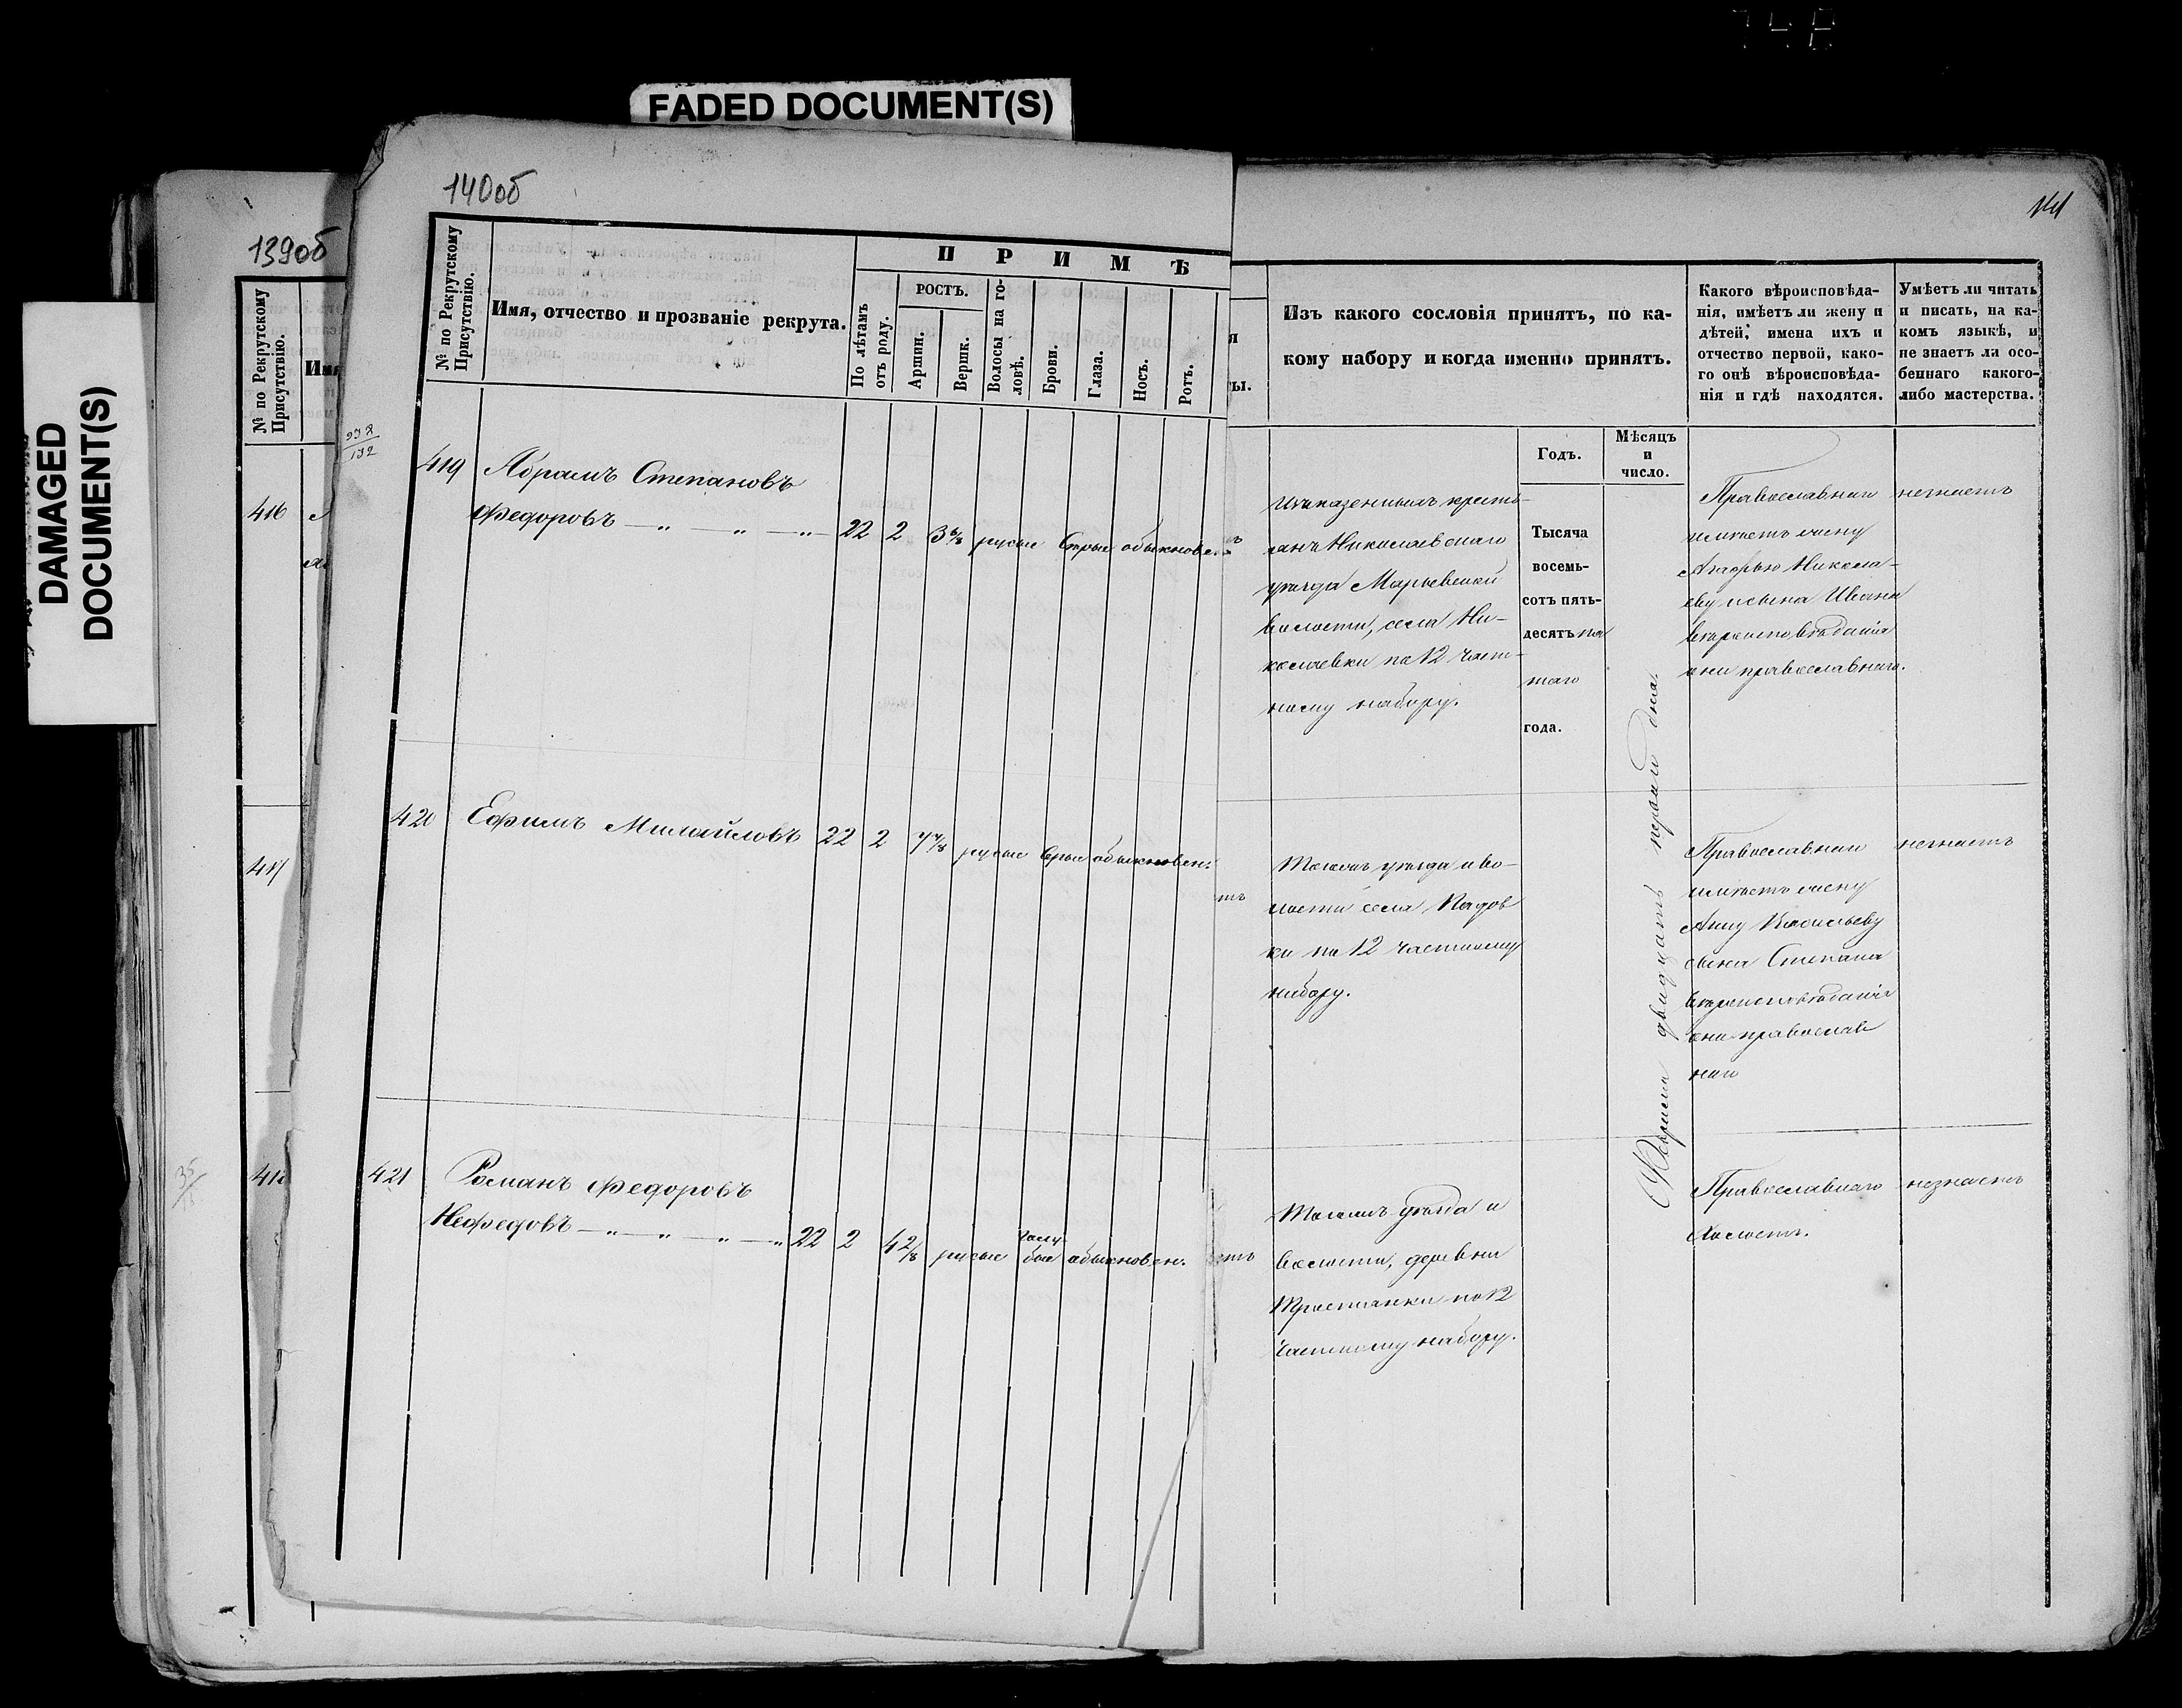 FADED DOCUMENT(S)
DAMAGED
DOCUMENT(S)
139об
№ по Рекрутскому
Присутствію.
416
417
140об
№ по Рекрутскому
Присутствію.
Имя, отчество и прозваніе рекрута.
П Р И М Ѣ
По лѣтамъ
отъ роду.
РОСТЪ.
Аршин.
Вершк.
Волосы на го-
ловѣ.
Брови.
Глаза.
Носъ.
Ротъ.
419 Абрамъ Степановъ
Федоровъ — „ — „ — „ — 22 2 3 6/8 русые Сѣрые обыкновен.
420 Ефимъ Михайловъ 22 2 7 7/8 русые Сѣрые обыкновен.
421 Романъ Федоровъ
Нефедовъ — „ — „ — „ — „ 22 2 4 2/8 русые Голу
бые обыкновен.
141
Изъ какого сословія принятъ, по ка-
кому набору и когда именно принятъ.
Какого вѣроисповѣда-
нія, имѣетъ ли жену и
дѣтей; имена ихъ и
отчество первой, како-
го онѣ вѣроисповѣда-
нія и гдѣ находятся.
Умѣетъ ли читать
и писать, на ка-
комъ языкѣ, и
не знаетъ ли осо-
беннаго какого-
либо мастерства.
Годъ.
Мѣсяцъ
и
число.
Изъ казенныхъ кресть-
янъ Николаевскаго
уѣзда Марьевской
волости, села Ни-
колаевки по 12 част-
ному набору.
Тысяча
восемь-
сотъ пять-
десятъ пя
таго
года.
Февраля двадцать перваго дня.
Православнаго
имѣетъ жену
Агафью Никола-
еву и сына Ивана
вѣроисповѣданія
они православнаго.
незнаетъ
Тогожъ уѣзда и во-
лости села
ки по 12 частному
набору.
Православнаго
имѣетъ жену
Анну Васильеву
сына Степана
вѣроисповѣданія
они православ
наго
незнаетъ
Тогожъ уѣзда и
волости, деревни
Тростянки по 12
частному набору.
Православнаго
Холостъ.
незнаетъ